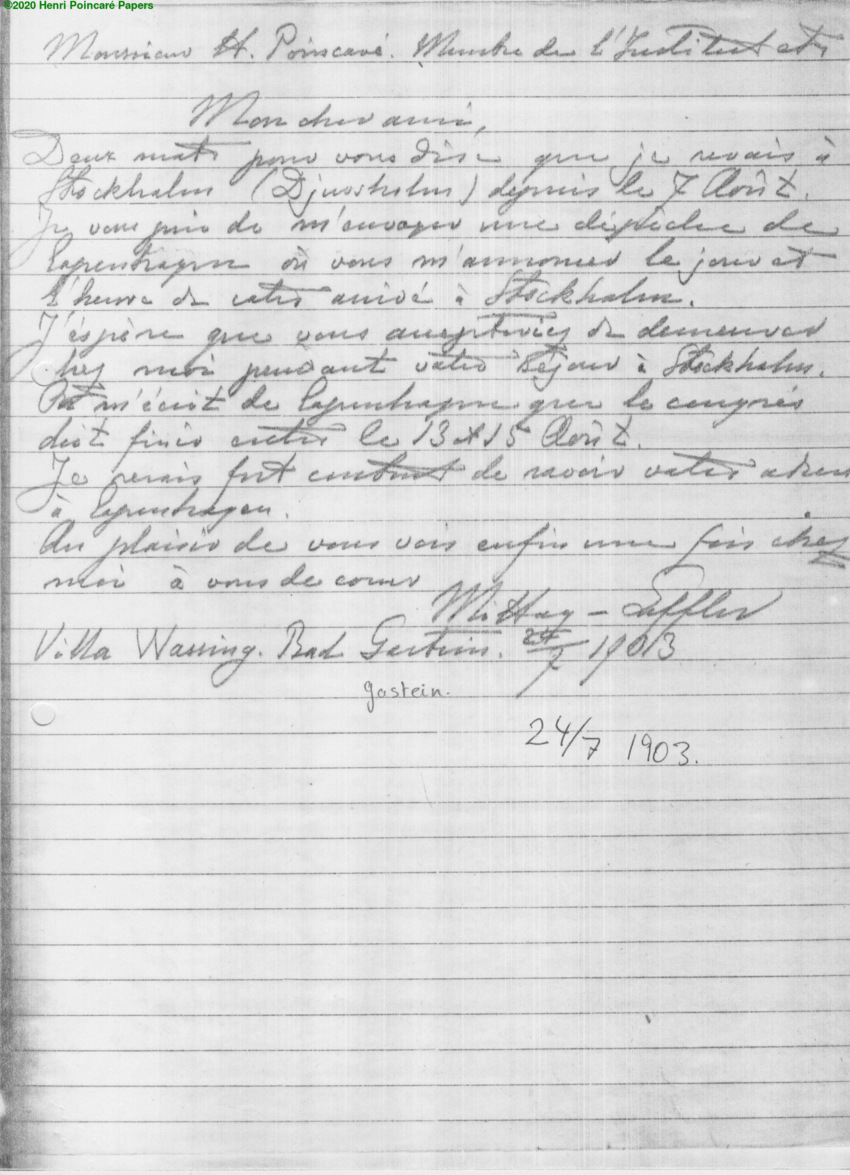 ©2020 Henri Poincaré Papers
Monsieur H. Poincaré. Membre de l'Institut etc
Mon cher ami,
Deux mots pour vous dire que je serais à
Stockholm (Djursholm) depuis le 7 Août.
Je vous prie de m'envoyer une dépêche de
Copenhague où vous m'annoncer le jour et
l'heure de votre arrivé à Stockholm.
J'éspère que vous accepteriez de demeurer
chez moi pendant votre séjour à Stockholm.
On m'écrit de Copenhague que le congrès
doit finir entre le 13 et 15 Août.
Je serais fort content de savoir votre adresse
à Copenhagen.
Au plaisir de vous voir enfin une fois chez
moi à vous de coeur
Mittag-Leffler
Villa Wassing. Bad Gastein. 24/7 1903
gastein.
24/7 1903.